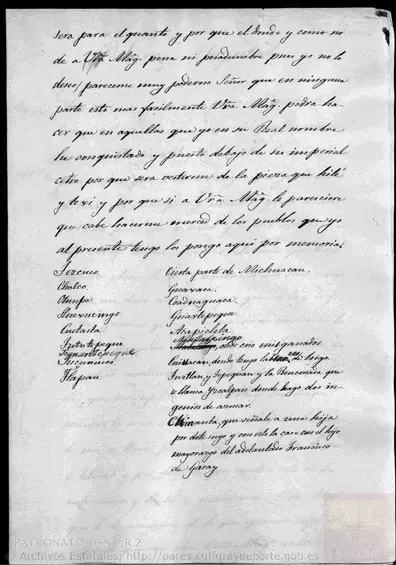 sera para el quanto y por que el donde y como no
de a Vra Mag. pena ni pesadumbre pues yo no la
deseo, pareceme muy poderoso Señor que en ninguna
parte esto mas facilmente Vra Mag. podra ha-
cer que en aquellas que yo en su Real nombre
he conquistado y puesto debajo de su imperial
cetro por que sera vestirme de la pieza que hilé
y texi y por que si a Vra Mag. le pareciere
que cabe hacerme merced de los pueblos que yo
al presente tengo los pongo aqui por memoria,
Tezcuco
Chalco
Otumpa
Guexucingo
Cuetasta
Tututepeque
Teguantepeque
Soconusco
Tlapan
Cierta parte de Michuacan.
Guaxaca.
Coadnaguaca.
Guaxtepeque
Acapistla
donde crio mis ganados
Cuiuacan, donde tengo labranzas de trigo
y la Renconada que
se llama Yzcalpan donde hago dos in-
genios de azucar.
Chinanta, que señale a una hija
por dote suyo y con esto la case con el hijo
mayorazgo del adelantado Francisco
de Garay
PATRONATO,16,N.2,R.2
Archivos Estatales, http://pares.culturaydeporte.gob.es